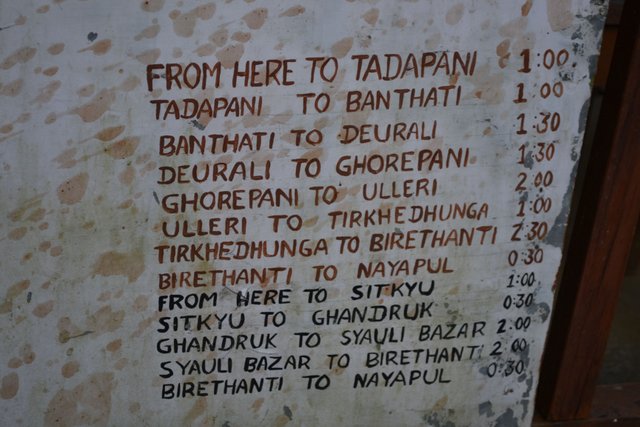 FROM HERE TO TADAPANI 1:00
TADAPANI TO BANTHATI 1:00
BANTHATI TO DEURALI 1:30
DEURALI TO GHOREPANI 1:30
GHOREPANI TO ULLERI 2:00
ULLERI TO TIRKHEDHUNGA 1:00
TIRKHEDHUNGA TO BIRETHANTI 2:30
BIRETHANTI TO NAYAPUL 0:30
FROM HERE TO SITKYU 1:00
SITKYU TO GHANDRUK 0:30
GHANDRUK TO SYAULI BAZAR 2:00
SYAULI BAZAR TO BIRETHANTI 2:00
BIRETHANTI TO NAYAPUL 0:30